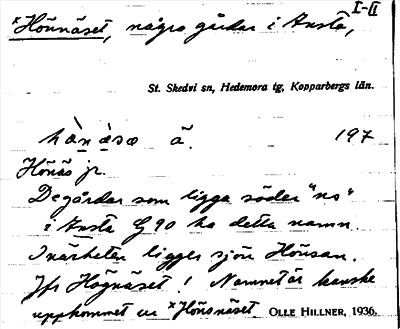 I-II
*Hönnäset, några gårdar i Ansta,
St. Skedvi sn, Hedemora tg, Kopparbergs län.
hà̀n ä̀sǝ ã. 197
Hönäs jr.
De gårdar som ligga söder "ns"
i Ansta G 90 ha detta namn.
I närheten ligger sjön Hönsan.
Jfr Högnäset! Namnet är kanske
uppkommet ur *Hönsnäset OLLE HILLNER, 1936.